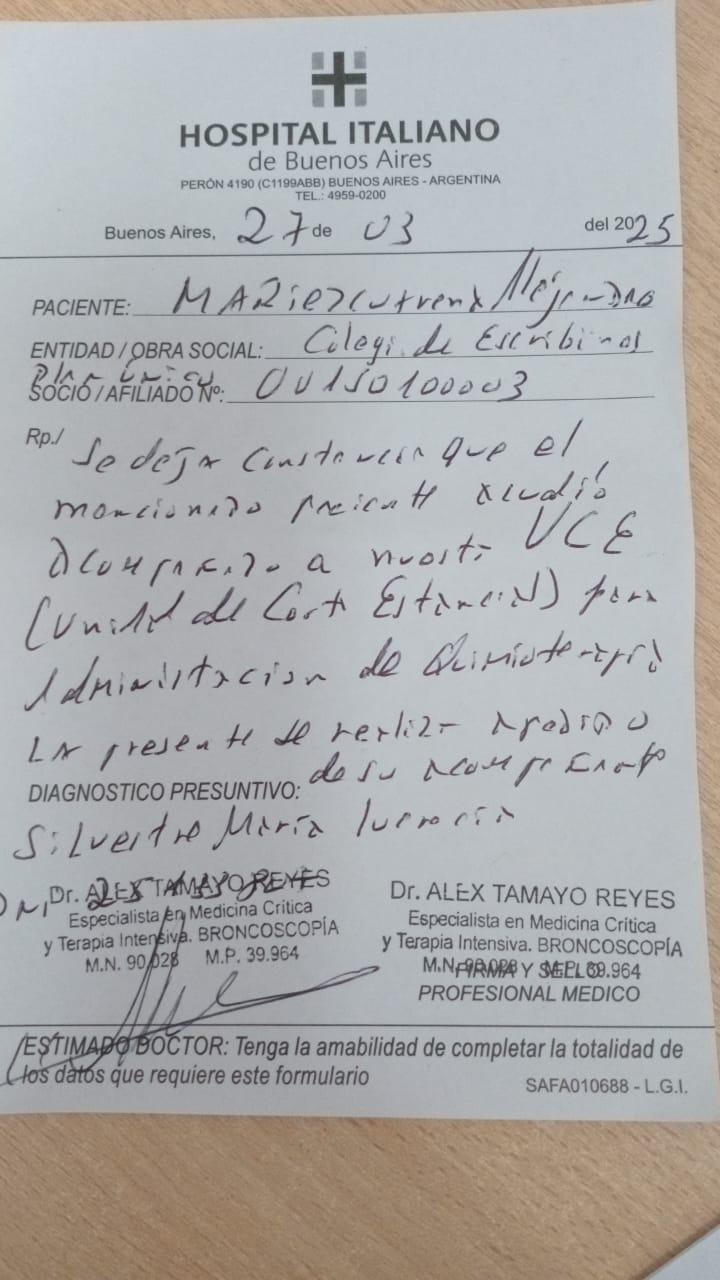 HOSPITAL ITALIANO
de Buenos Aires
PERÓN 4190 (C1199ABB) BUENOS AIRES - ARGENTINA
TEL.: 4959-0200
Buenos Aires, 27 de 03 del 2025
PACIENTE: Alejandro
ENTIDAD / OBRA SOCIAL: Colegi. de Escribanos
Plan Único
SOCIO / AFILIADO Nº: 00150100003
Rp./ Se deja constancia que el
mencionado paciente acudió
acompañado a nuestra UCE
(Unidad de Corta Estancia) para
Administracion de Quimioterapia
La presente se realiza a pedido
de su acompañante
DIAGNOSTICO PRESUNTIVO:
Silvestre María Lucrecia
DNI
Dr. ALEX TAMAYO REYES
Especialista en Medicina Crítica
y Terapia Intensiva. BRONCOSCOPÍA
M.N. 90.028 M.P. 39.964
Dr. ALEX TAMAYO REYES
Especialista en Medicina Crítica
y Terapia Intensiva. BRONCOSCOPÍA
M.N. 90.028 M.P. 39.964
FIRMA Y SELLO
PROFESIONAL MEDICO
ESTIMADO DOCTOR: Tenga la amabilidad de completar la totalidad de
los datos que requiere este formulario
SAFA010688 - L.G.I.